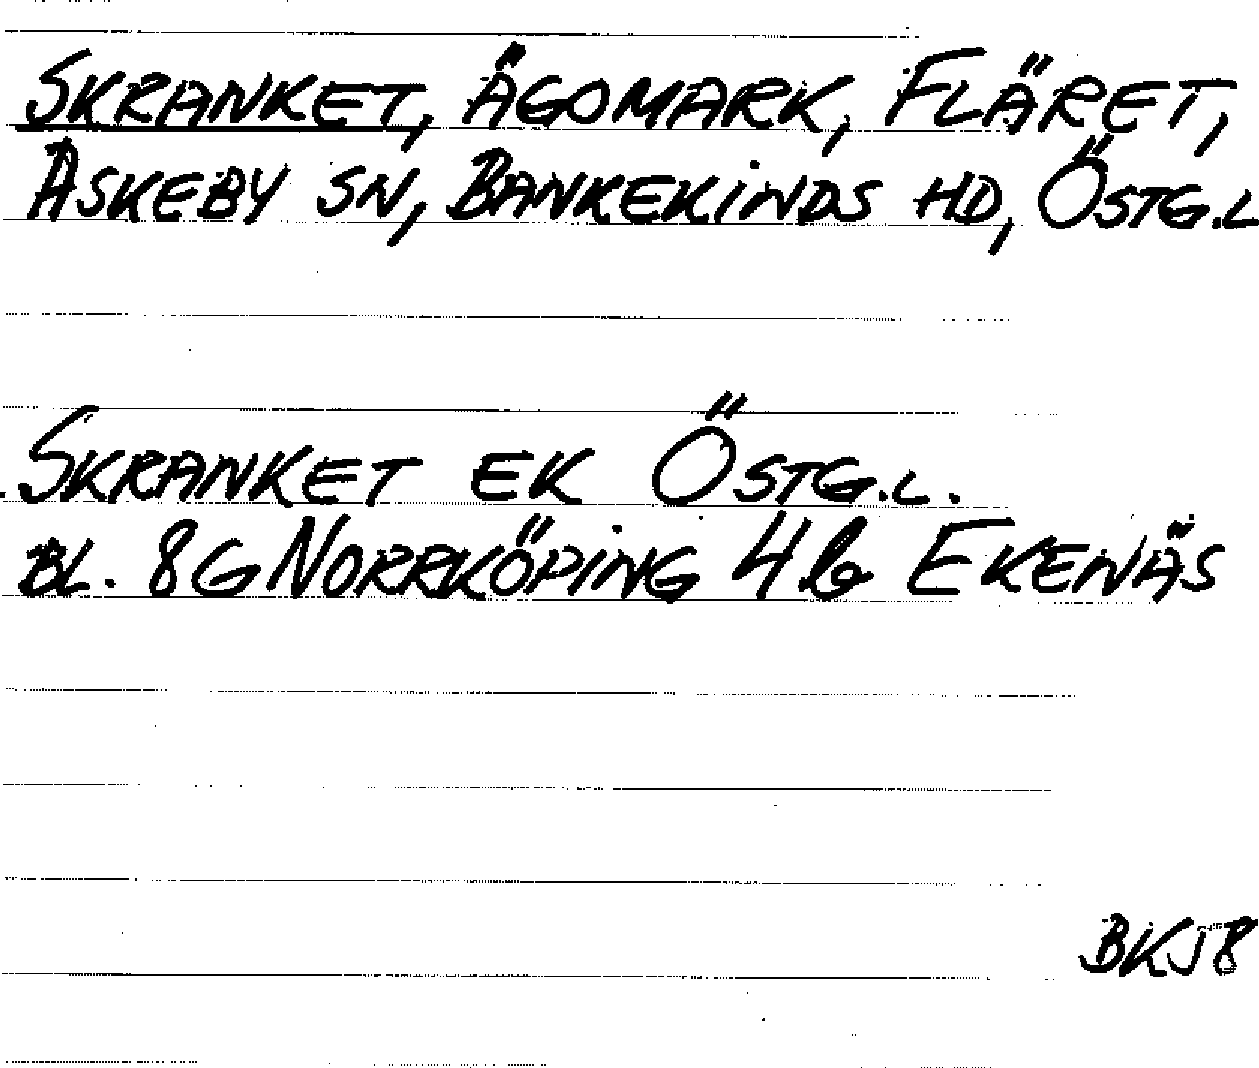 SKRANKET, ÄGOMARK, FLÄRET,
ASKEBY SN, BANKEKINDS HD, ÖSTG.L
SKRANKET EK ÖSTG.L.
BL. 8G NORRKÖPING 4b EKENÄS
BKJ8